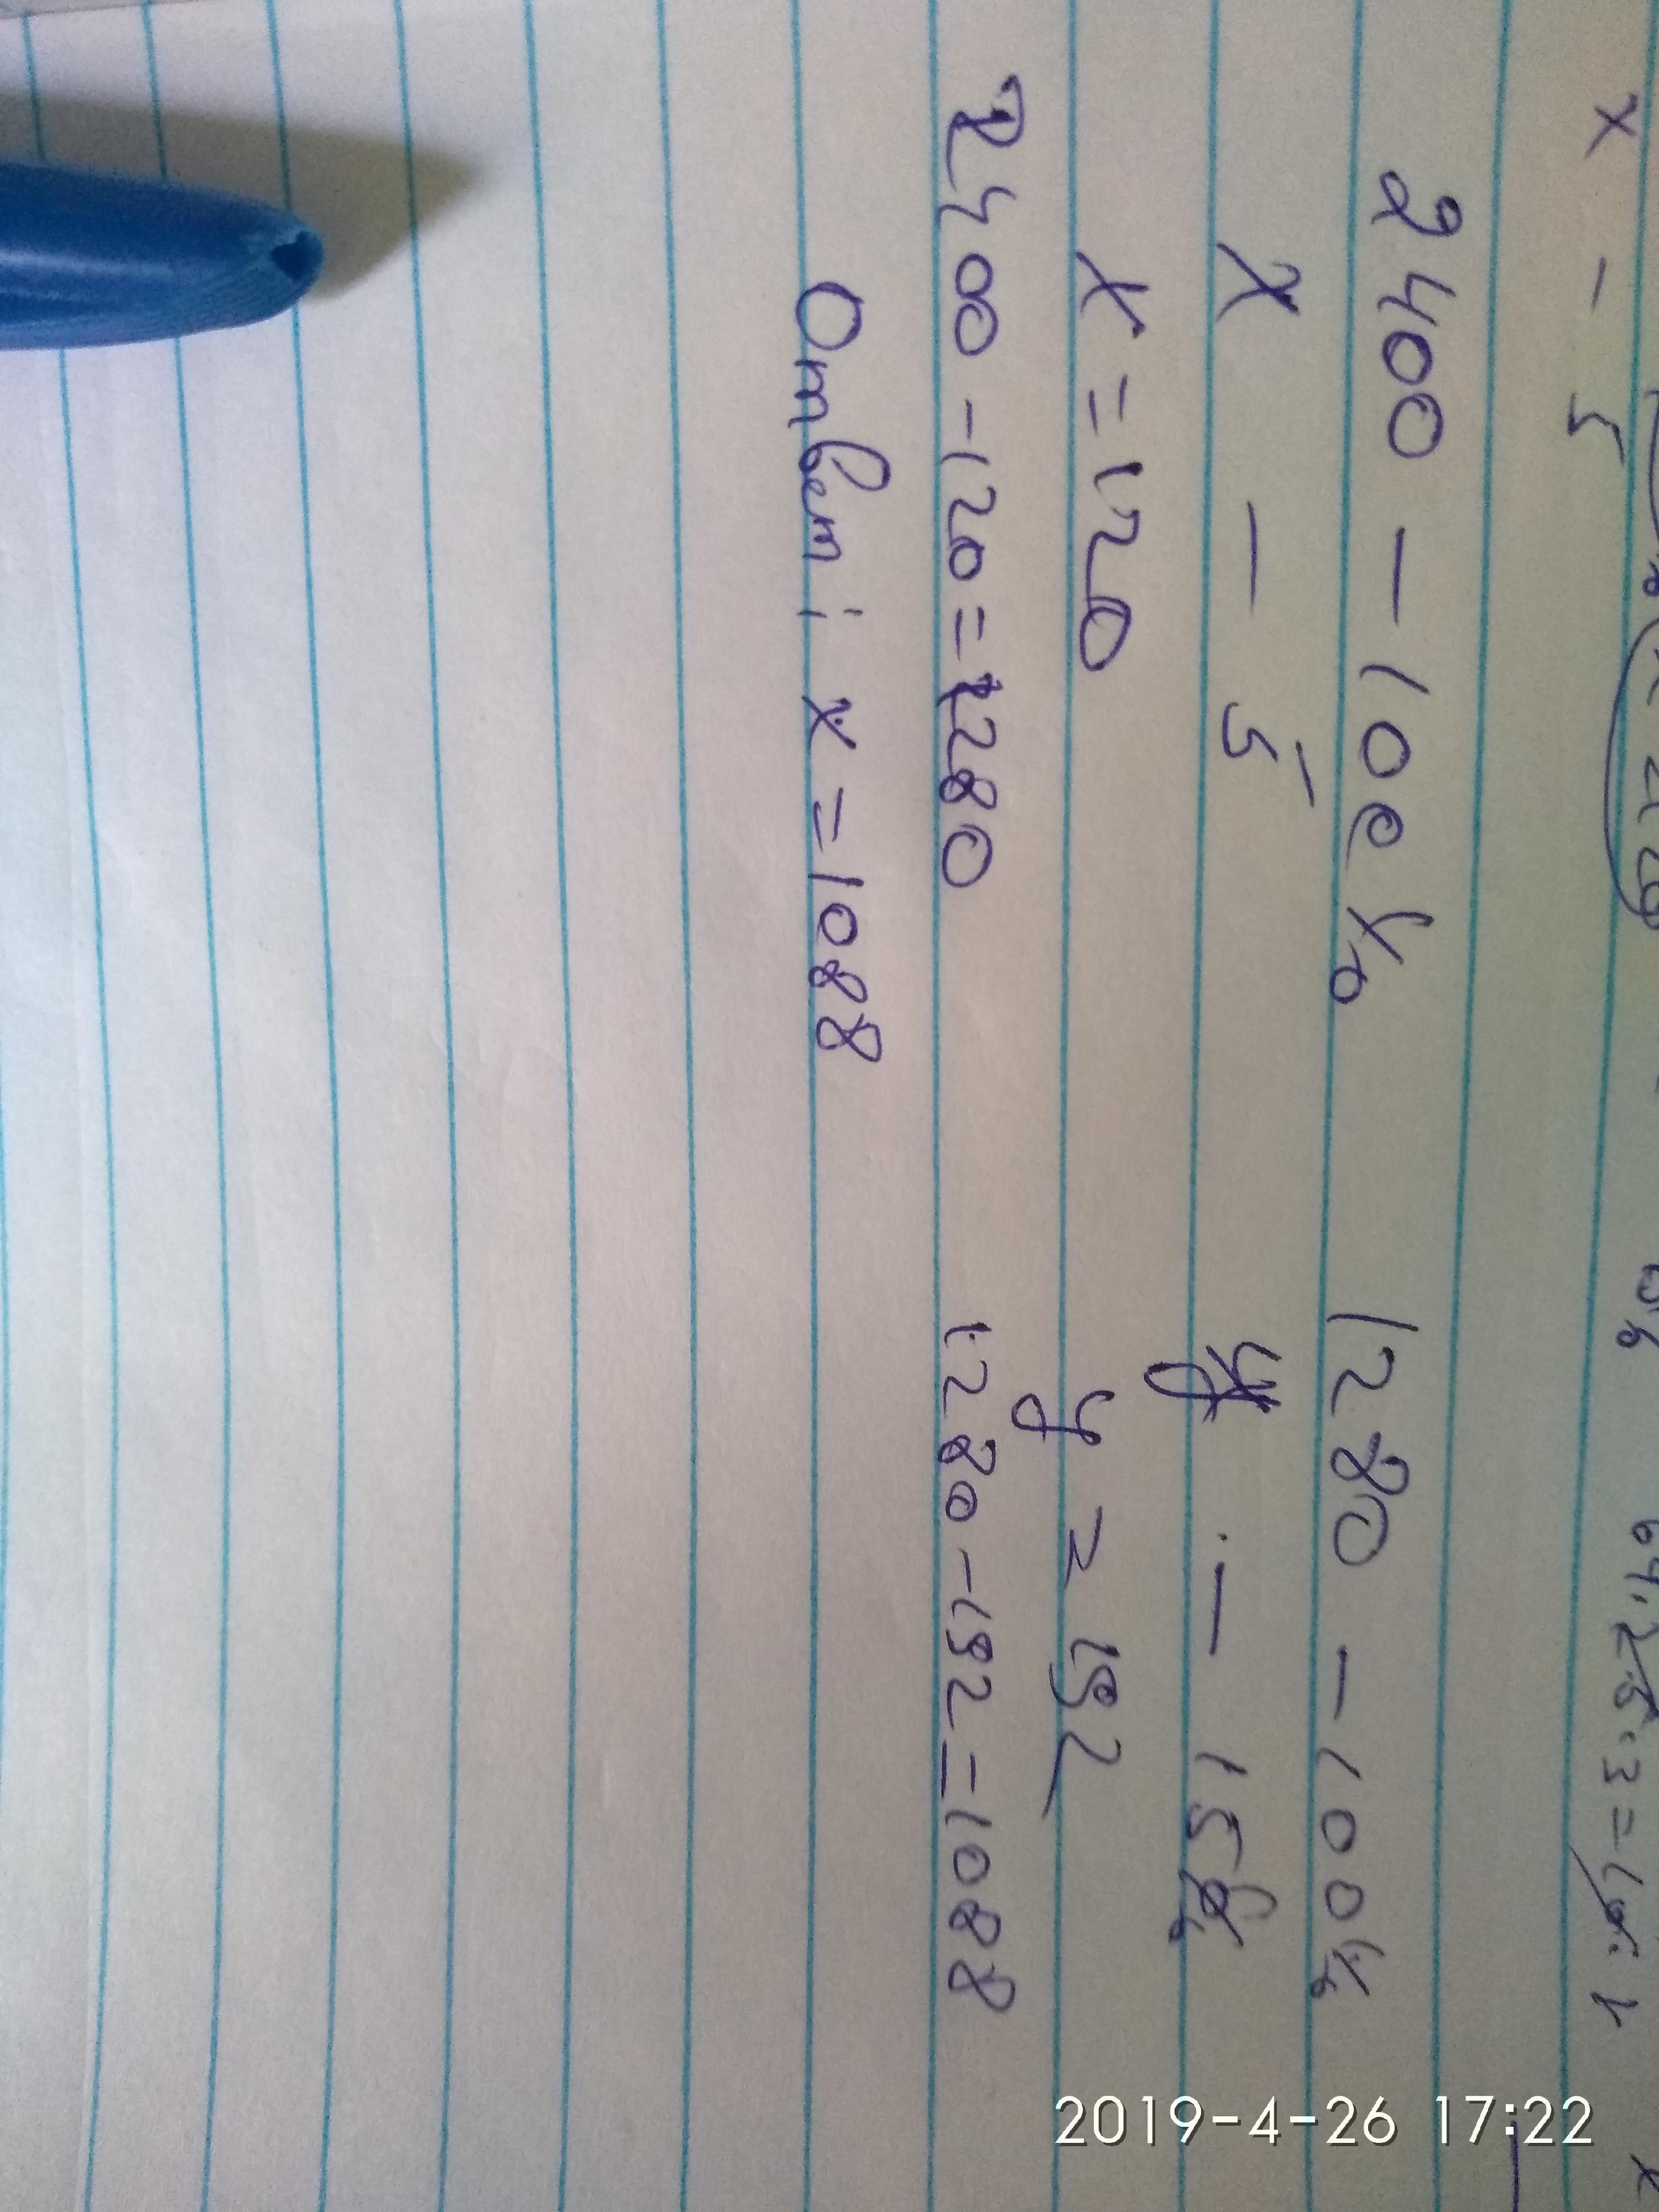 x - 5
64.25.3=
2400 - 100% 1280 - 100%
x - 5 y - 15%
x = 120 y = 192
2400 - 120 = 1280 1280 - 192 = 1088
Ответ: x = 1088
2019-4-26 17:22